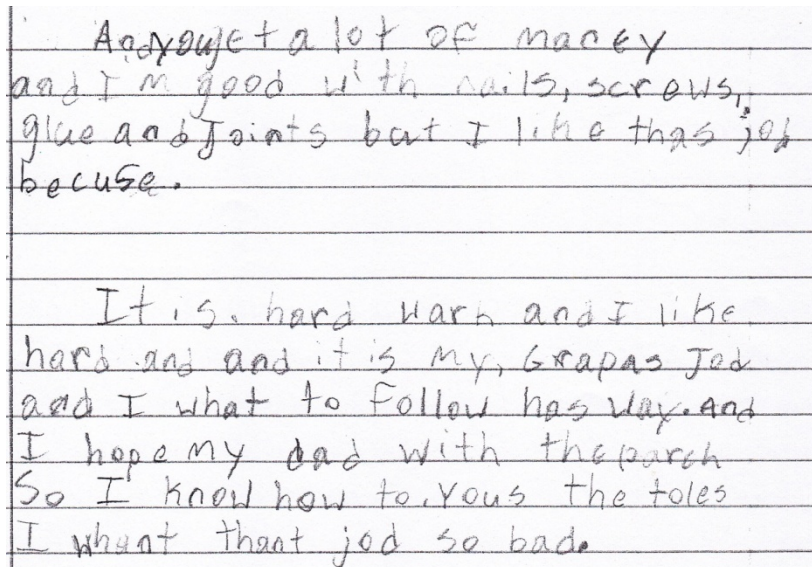 And you jet a lot of maney
and I m good with nails, screws,
glue and Joints but I like thas job
becuse.
It is. hard warh and I like
hard and and it is my, Grapas Jod
and I what to follow has way. And
I hope my dad with the parch
So I know how to. Yous the toles
I whant thant jod so bad.